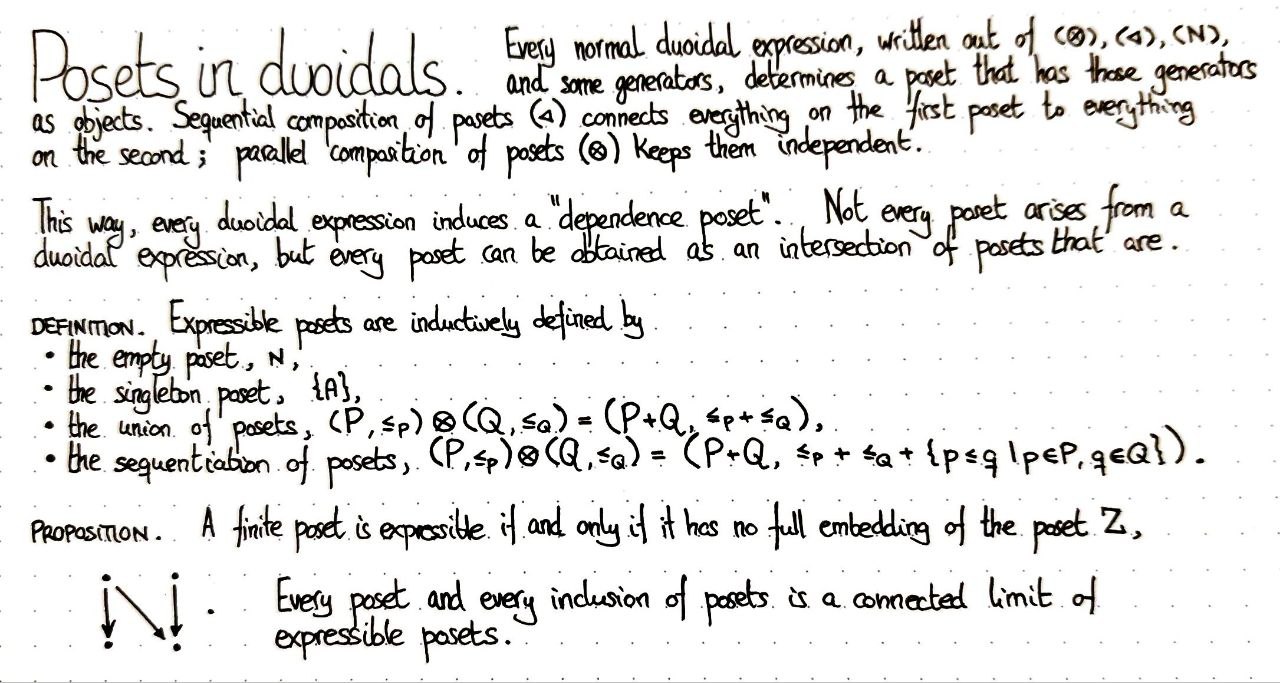 Posets in duoidals. Every normal duoidal expression, written out of (⊗), (◁), (N),
and some generators, determines a poset that has those generators
as objects. Sequential composition of posets (◁) connects everything on the first poset to everything
on the second; parallel composition of posets (⊗) keeps them independent.
This way, every duoidal expression induces a "dependence poset". Not every poset arises from a
duoidal expression, but every poset can be obtained as an intersection of posets that are.
DEFINITION. Expressible posets are inductively defined by
• the empty poset, N,
• the singleton poset, {A},
• the union of posets, (P, ≤P) ⊗ (Q, ≤Q) = (P+Q, ≤P + ≤Q),
• the sequentiation of posets, (P, ≤P) ⊗ (Q, ≤Q) = (P+Q, ≤P + ≤Q + {p ≤ q | p∈P, q∈Q}).
PROPOSITION. A finite poset is expressible if and only if it has no full embedding of the poset Z,
. Every poset and every inclusion of posets is a connected limit of
expressible posets.